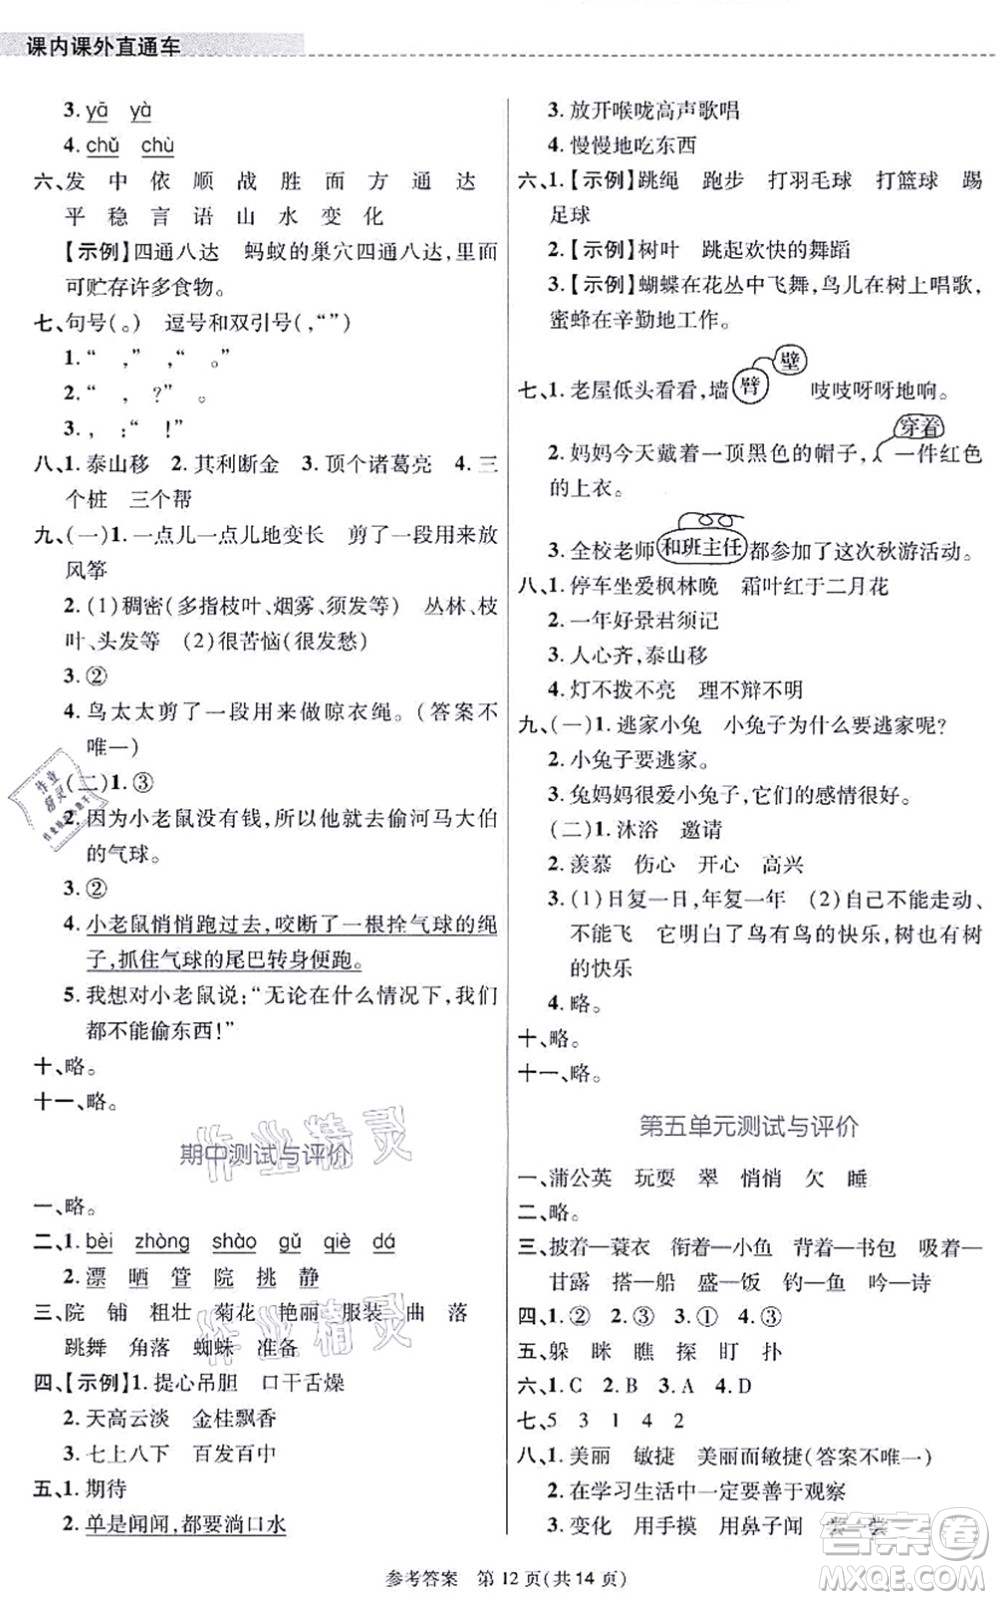 课内课外直通车
3. yā yà
4. chǔ chù
六、发 中 依 顺 战 胜 面 方 通 达
平 稳 言 语 山 水 变 化
【示例】四通八达 蚂蚁的巢穴四通八达，里面
可贮存许多食物。
七、句号(。) 逗号和双引号(，“”)
1.“ ，” “ 。”
2.“ ， ？” 。
3.， ：“ ！”
八、1. 泰山移 2. 其利断金 3. 顶个诸葛亮 4. 三
个桩 三个帮
九、(一)1. 一点儿一点儿地变长 剪了一段用来放
风筝
2. (1)稠密(多指枝叶、烟雾、须发等) 丛林、枝
叶、头发等 (2)很苦恼(很发愁)
3. ②
4. 鸟太太剪了一段用来做晾衣绳。(答案不
唯一)
(二)1. ③
2. 因为小老鼠没有钱，所以他就去偷河马大伯
的气球。
3. ②
4. 小老鼠悄悄跑过去，咬断了一根拴气球的绳
子，抓住气球的尾巴转身便跑。
5. 我想对小老鼠说：“无论在什么情况下，我们
都不能偷东西！”
十、略。
十一、略。
期中测试与评价
一、略。
二、1. bèi zhòng shào gǔ qiè dá
2. 漂 晒 管 院 挑 静
三、院 铺 粗壮 菊花 艳丽 服装 曲 落
跳舞 角落 蜘蛛 准备
四、【示例】1. 提心吊胆 口干舌燥
2. 天高云淡 金桂飘香
3. 七上八下 百发百中
五、1. 期待
2. 单是闻闻，都要淌口水
3. 放开喉咙高声歌唱
4. 慢慢地吃东西
六、1.【示例】跳绳 跑步 打羽毛球 打篮球 踢
足球
2.【示例】树叶 跳起欢快的舞蹈
3.【示例】蝴蝶在花丛中飞舞，鸟儿在树上唱歌，
蜜蜂在辛勤地工作。
壁
七、1. 老屋低头看看，墙臂 吱吱呀呀地响。
穿着
2. 妈妈今天戴着一顶黑色的帽子， 一件红色
的上衣。
3. 全校老师和班主任都参加了这次秋游活动。
八、1. 停车坐爱枫林晚 霜叶红于二月花
2. 一年好景君须记
3. 人心齐，泰山移
4. 灯不拨不亮 理不辩不明
九、(一)1. 逃家小兔 小兔子为什么要逃家呢？
2. 小兔子要逃家。
3. 兔妈妈很爱小兔子，它们的感情很好。
(二)1. 沐浴 邀请
2. 羡慕 伤心 开心 高兴
3. (1)日复一日，年复一年 (2)自己不能走动、
不能飞 它明白了鸟有鸟的快乐，树也有树
的快乐
4. 略。
十、略。
十一、略。
第五单元测试与评价
一、蒲公英 玩耍 翠 悄悄 欠 睡
二、略。
三、披着—蓑衣 衔着—小鱼 背着—书包 吸着—
甘露 搭—船 盛—饭 钓—鱼 吟—诗
四、1. ② 2. ③ 3. ① 4. ③
五、躲 眯 瞧 探 盯 扑
六、1. C 2. B 3. A 4. D
七、5 3 1 4 2
八、1. 美丽 敏捷 美丽而敏捷(答案不唯一)
2. 在学习生活中一定要善于观察
3. 变化 用手摸 用鼻子闻 尝 尝
参考答案 第 12 页(共 14 页)
作业精灵
作业精灵
答案圈
MXQE.COM